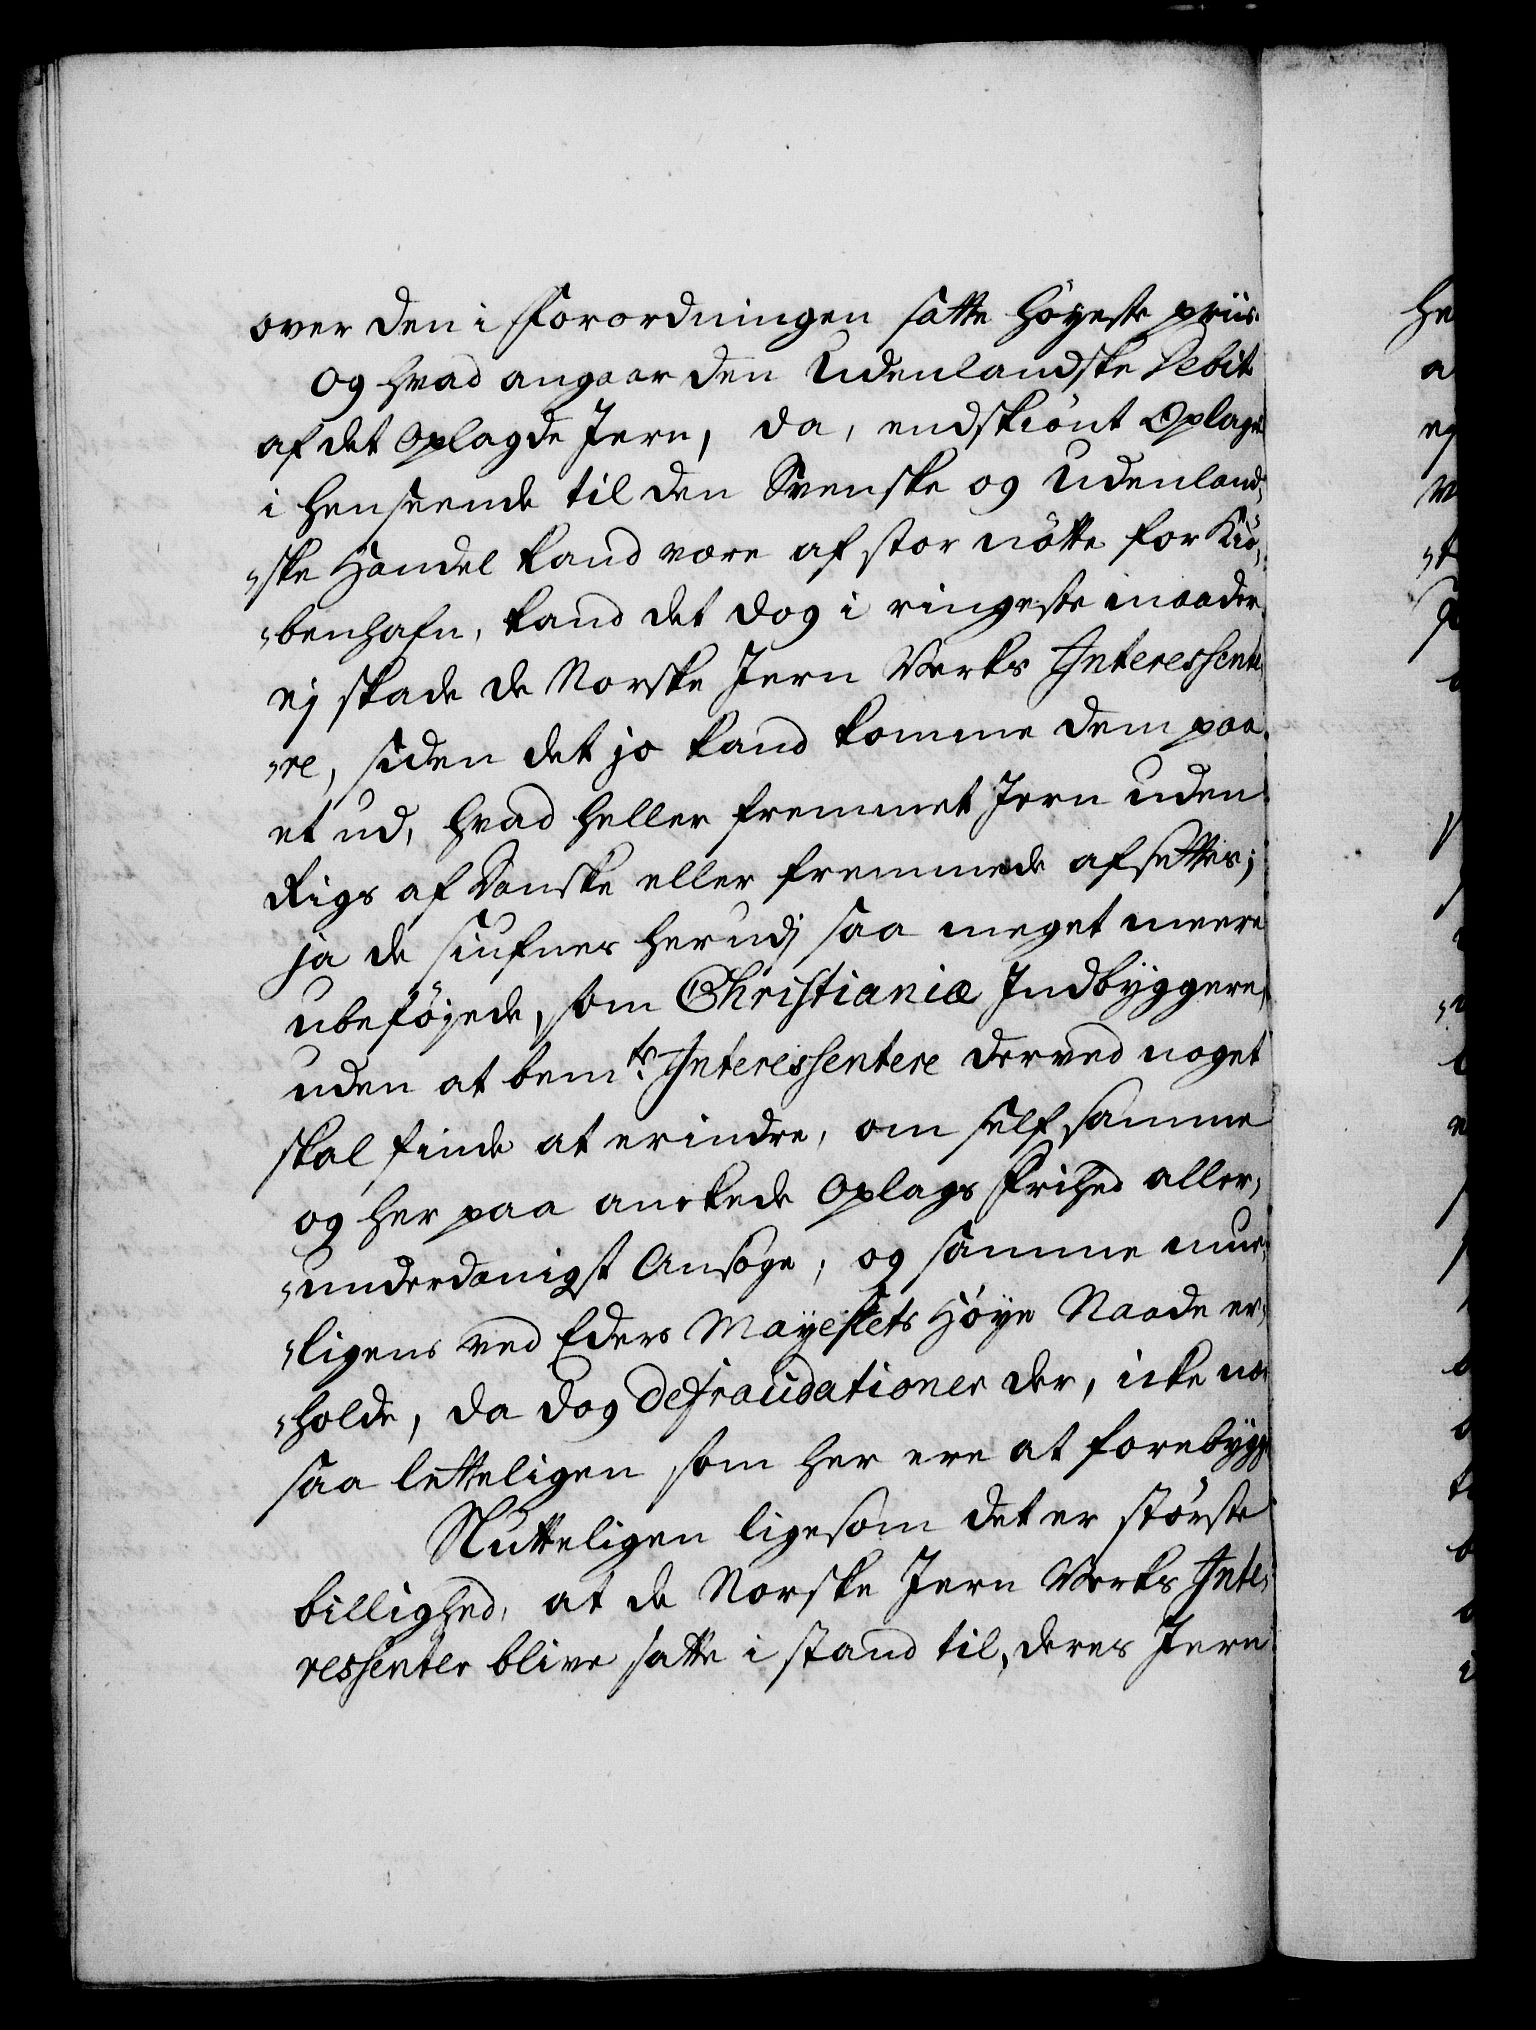 over den i Forordningen satte høyeste priis.
Og hvad angaar den Udenlandske Debit
af det Oplagde Jern, da, endskiønt Oplaget
i henseende til den Svenske og Udenland-
"ske Handel kand være af stor nötte for Kiö-
"benhafn, kand det dog i ringeste maader
ej skade de Norske Jern Verks Interessente
"re, siden det jo kand komme dem paa
et ud, hvad heller fremmet Jern uden
Rigs af Danske eller fremmede afsettes;
ja de siufnes herudj saa meget meere
ubeføjede, som Christianiæ Indbyggere,
uden at bemte. Interessentere derved noget
skal finde at erindre, om selfsamme
og her paa ankede Oplags Frihed aller,
"underdanigst Ansöge, og samme mue,
"ligens ved Eders Mayestets Høye Naade er,
"holde, da dog defraudationer der, icke nær
saa letteligen som her ere at forebygge
Slutteligen ligesom det er største
billighed, at de Norske Jern Verks Inte,
ressenter blive satte i stand til, deres Jern